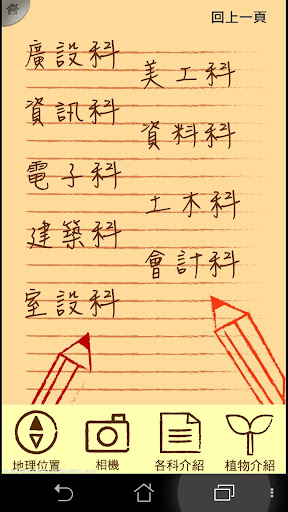 回上一頁
廣設科
美工科
資訊科
資料科
電子科
土木科
建築科
會計科
室設科
地理位置 相機 各科介紹 植物介紹